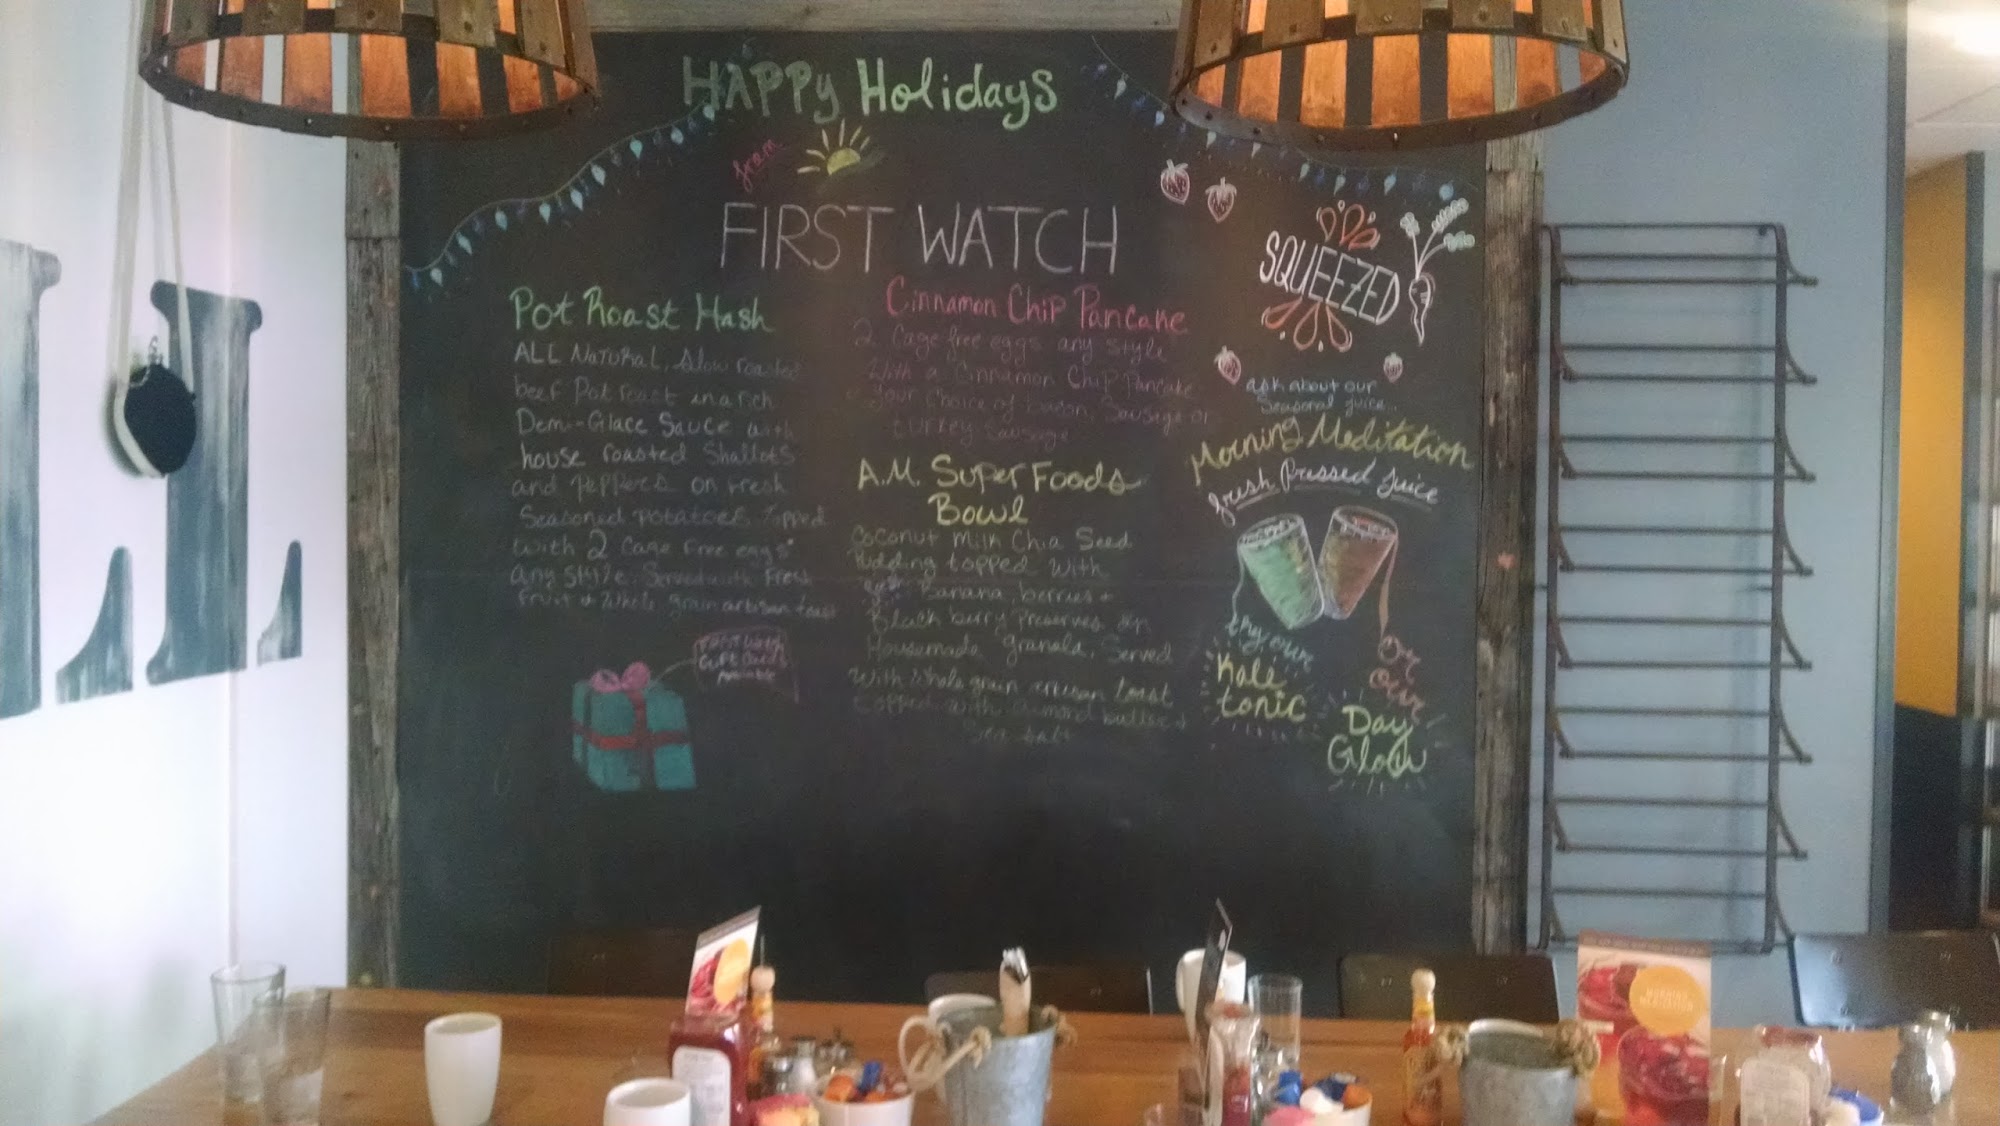 HAPPy Holidays
from
FIRST WATCH
Pot Roast Hash
ALL Natural, Slow roasted
beef Pot roast in a rich
Demi-Glace Sauce with
house roasted Shallots
and peppers on Fresh
Seasoned potatoes topped
with 2 Cage Free eggs*
any style. Served with Fresh
Fruit + Whole grain artisan toast
FIRST WATCH
Gift Cards
Available
Cinnamon Chip Pancake
2 Cage free eggs any style
With a Cinnamon Chip Pancake
Your Choice of bacon, Sausage or
turkey Sausage
A.M. Super Foods
Bowl
Coconut Milk Chia Seed
Pudding topped with
Banana, berries +
Blackberry Preserves
Housemade granola, Served
With Whole grain artisan toast
topped with almond butter +
Sea Salt
SQUEEZED
ask about our
Seasonal juice..
Morning Meditation
fresh Pressed Juice
try our
Kale
tonic
or
our
Day
Glow
MORNING
MEDITATION
LL